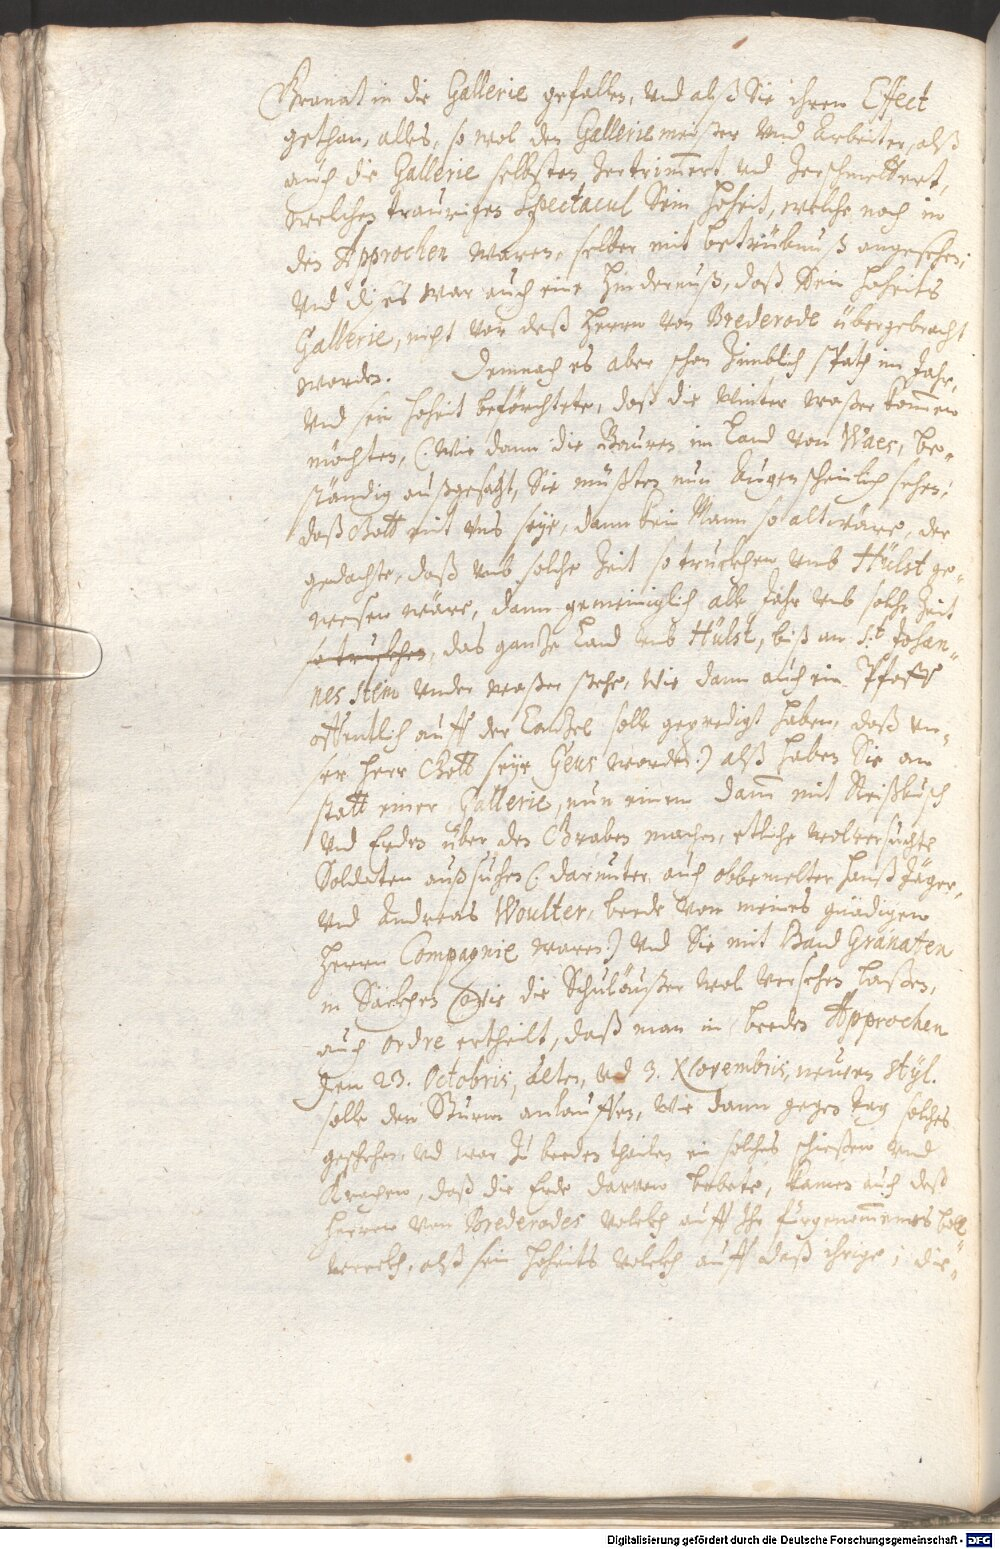 Granat in die Gallerie gefallen, vnd alß Sie ihren Effect
gethan, alles, so wol den Galleriemeister vnd Arbeiter, alß
auch die Gallerie selbsten zertrim̄ert vnd zerschmettert,
welchen traurigen Spectacul Sein Hoheit, welche noch in
den Approchen waren, selber mit betrübnuß angesehen,
vnd dises war auch eine Hindernuß, daß Sein Hoheits
Gallerie, nicht vor deß Herrn von Brederode übergebracht
worden. Demnach es aber schon zimblich spath im Jahr,
vnd sein Hoheit beförchtete, daß die Winter waßer kom̄en
möchten, (: Wie dann die Bauren im Land von Waes, be-
ständig außgesagt, Sie müßten nun Augenscheinlich sehen,
daß Gott mit vns seye, dann kein Mann so alt wäre, der
gedachte, daß vmb solche Zeit so trucken vmb Hülst ge-
wesen wäre, dann gemeiniglich alle Jahr vmb solche Zeit
so trucken, das gantze Land vmb Hülst, biß an St. Johan-
nes Stein vnder waßer stehe, Wie dann auch ein Pfaff
offentlich auff der Cantzel solle gepredigt haben, daß vn-
ser Herr Gott seye Geus worden :) alß haben Sie an
statt einer Gallerie, nun einen Dam̄ mit Reißbusch
vnd Erden über den Graben machen, etliche wolversuchte
Soldaten außsuchen (: darunter auch obbemelter Hanß Jäger,
vnd Andreas Woulter, beede von meines gnädigen
Herrn Compagnie waren :) vnd Sie mit Hand Granaten
in Säckhen Wie die Schulaußer wol versehen laßen,
auch ordre ertheilt, daß man in beeden Approchen
den 23. Octobris, alten, vnd 3. Novembris, neuen Styl.
solle den Sturm anlauffen, Wie dann gegen tag solches
geschehen, vnd war zu beeden theilen ein solches schießen vnd
Krachen, daß die Erde darvon bebete, kamen auch deß
Herrn von Brederodes volckh auff Ihr fürgenom̄enes boll-
werckh, alß sein Hoheits volckh auff daß ihrige; die-
Digitalisierung gefördert durch die Deutsche Forschungsgemeinschaft - DFG